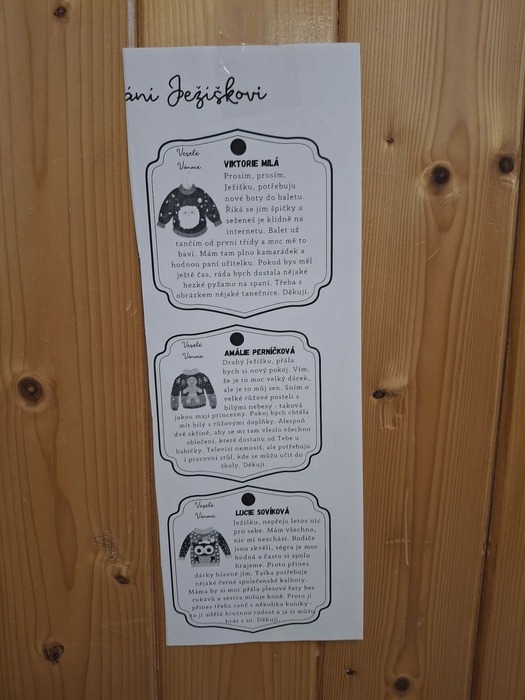 ání Ježíškovi
Veselé
Vánoce
VIKTORIE MILÁ
Prosím, prosím,
Ježíšku, potřebuju
nové boty do baletu.
Říká se jim špičky a
seženeš je klidně na
internetu. Balet už
tančím od první třídy a moc mě to
baví. Mám tam plno kamarádek a
hodnou paní učitelku. Pokud bys měl
ještě čas, ráda bych dostala nějaké
hezké pyžamo na spaní. Třeba s
obrázkem nějaké tanečnice. Děkuji.
Veselé
Vánoce
AMÁLIE PERNÍČKOVÁ
Drahý Ježíšku, přála
bych si nový pokoj. Vím,
že je to moc velký dárek,
ale je to můj sen. Sním o
velké růžové posteli s
bílými nebesy - taková
jakou mají princezny. Pokoj bych chtěla
mít bílý s růžovými doplňky. Alespoň
dvě skříně, aby se mi tam vlezlo všechno
oblečení, které dostanu od Tebe u
babičky. Televizi nemusíš, ale potřebuju
i pracovní stůl, kde se můžu učit do
školy. Děkuji.
Veselé
Vánoce
LUCIE SOVÍKOVÁ
Ježíšku, nepřeju letos nic
pro sebe. Mám všechno,
nic mi neschází. Rodiče
jsou skvělí, ségra je moc
hodná a často si spolu
hrajeme. Proto přines
dárky hlavně jim. Taťka potřebuje
nějaké černé společenské kalhoty.
Máma by si moc přála plesové šaty bez
rukávů a sestra miluje koně. Proto jí
přines třeba ranč s několika koníky.
to jí udělá hroznou radost a já si můžu
hrát s ní. Děkuji.